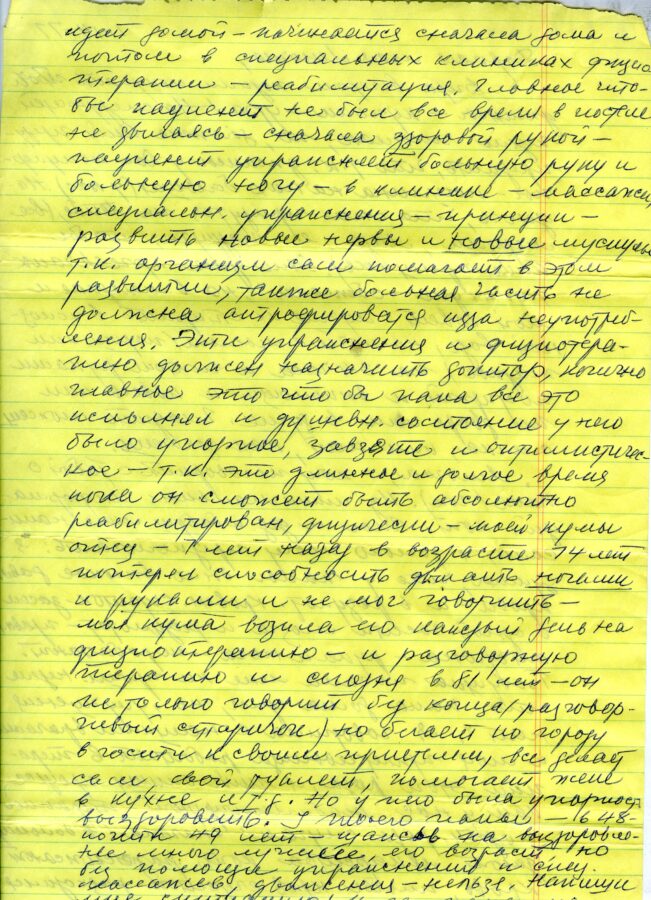 идет домой – начинается сначала дома и
потом в специальных клиниках физио
терапии – реабилитация. Главное что-
бы пациент не был все время в постеле
не двигаясь – сначала здоровой рукой –
пациент упражняет больную руку и
больную ногу – в клинике – массажи,
специальн. упражнения – принцип –
развить новые нервы и новые мускулы
т.к. организм сам помагает в этом
развитии, также больная часть не
должна атрофироватся изза неупотреб-
ления. Эти упражнения и физиотера-
пию должен назначить доктор, конечно
главное это что бы папа все это
исполнял и душевн. состояние у него
было упорное, завзяте и оптимистичес-
кое – т.к. это длинное и долгое время
пока он сможет быть абсолютно
реабилитирован, физически – моей кумы
отец – 7 лет назад в возрасте 74 лет
потерял способность двигать ногами
и руками и не мог говорить –
моя кума возила его каждый день на
физиотерапию – и разговорную
терапию и сегодня в 81 лет – он
не только говорит без конца (разговор-
чивый старичок) но бегает по городу
в гости к своим приятелям, все делает
сам, свой туалет, помогает жене
в кухне и т.д. Но у него была упорность
выздоровить. У твоего папы – 48-
почти 49 лет – шансов на выздоровле-
ние много лучшее, его возраст, но
без помощи упражнений и спец.
массажев, движения – нельзя. Напиши